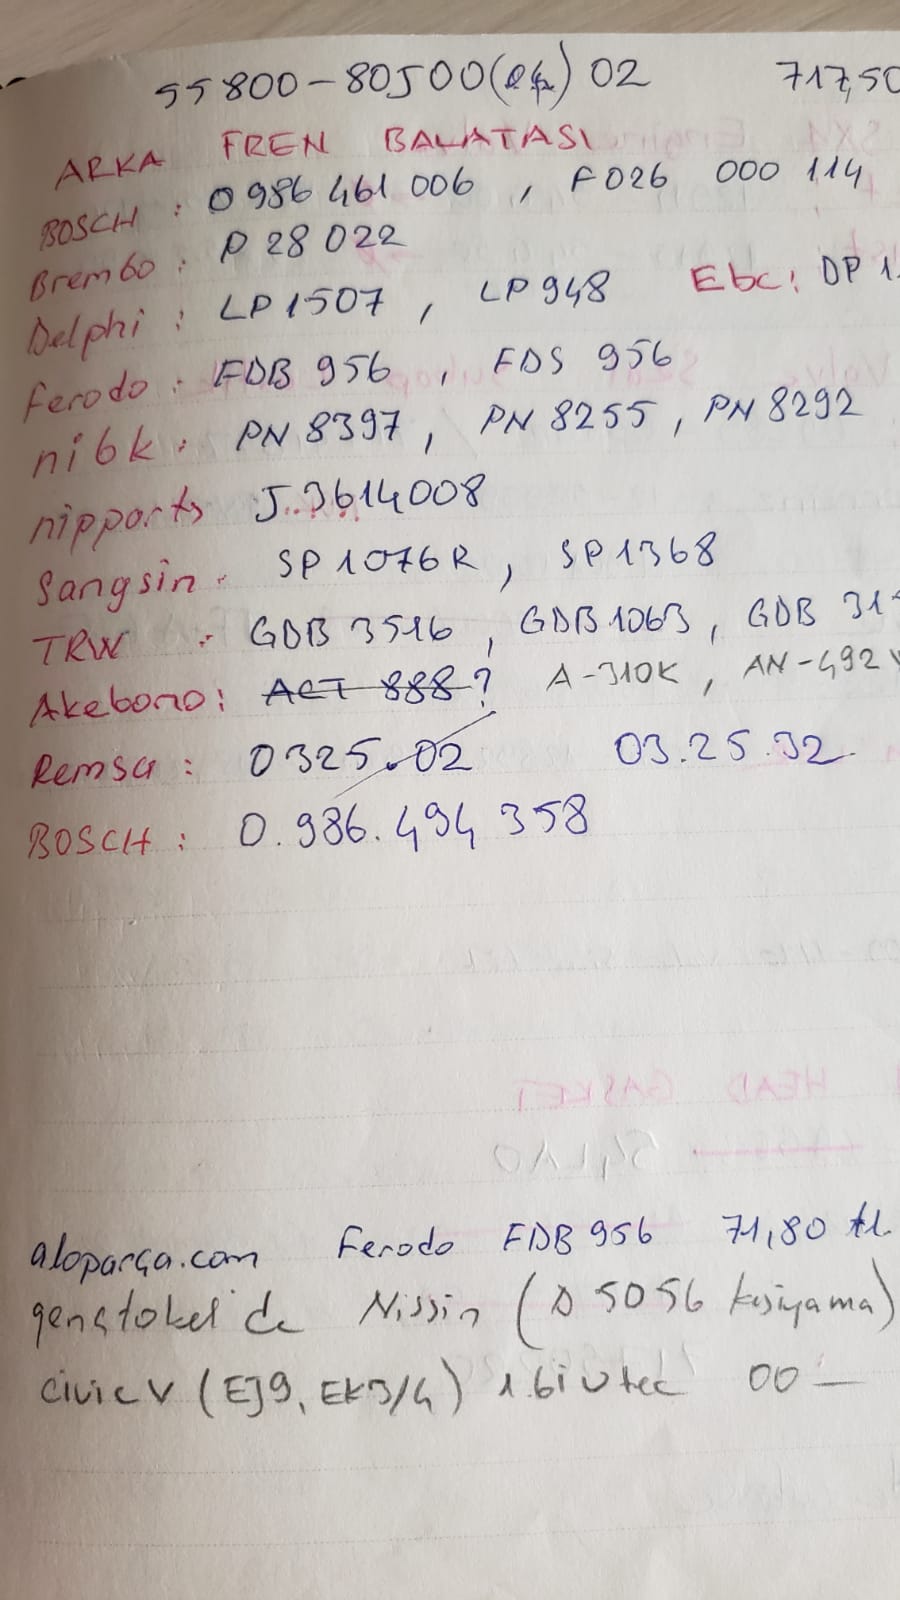 55800-80J00 02 717,50
ARKA FREN BALATASI
BOSCH : 0 986 461 006 , F026 000 114
Brembo : P 28 022
Delphi : LP1507 , LP948 Ebc: DP 1
Ferodo : FDB 956 , FDS 956
nibk : PN 8397 , PN 8255 , PN 8292
nipparts J.3614008
Sangsin SP1076R , SP1368
TRW : GDB 3516 , GDB1063 , GDB 31
Akebono: ACT 888 ? A-310K , AN-492
Remsa : 0325.02 03.25.32
BOSCH : 0.986.494 358
HEAD GASKET
aloparça.com Ferodo FDB 956 71,80 tl.
de Nissin (D 5056 kasiyama)
civic V (EJ9, EK3/4) 1.6i vtec 00 —